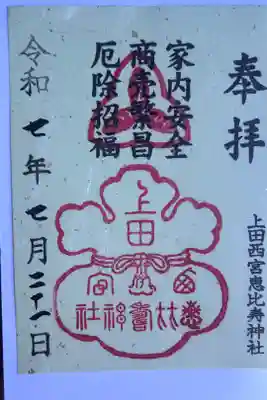 奉拝
上田西宮恵比寿神社
家内安全
商売繁昌
厄除招福
上田
西宮
惠比壽神社
令和七年七月二十一日